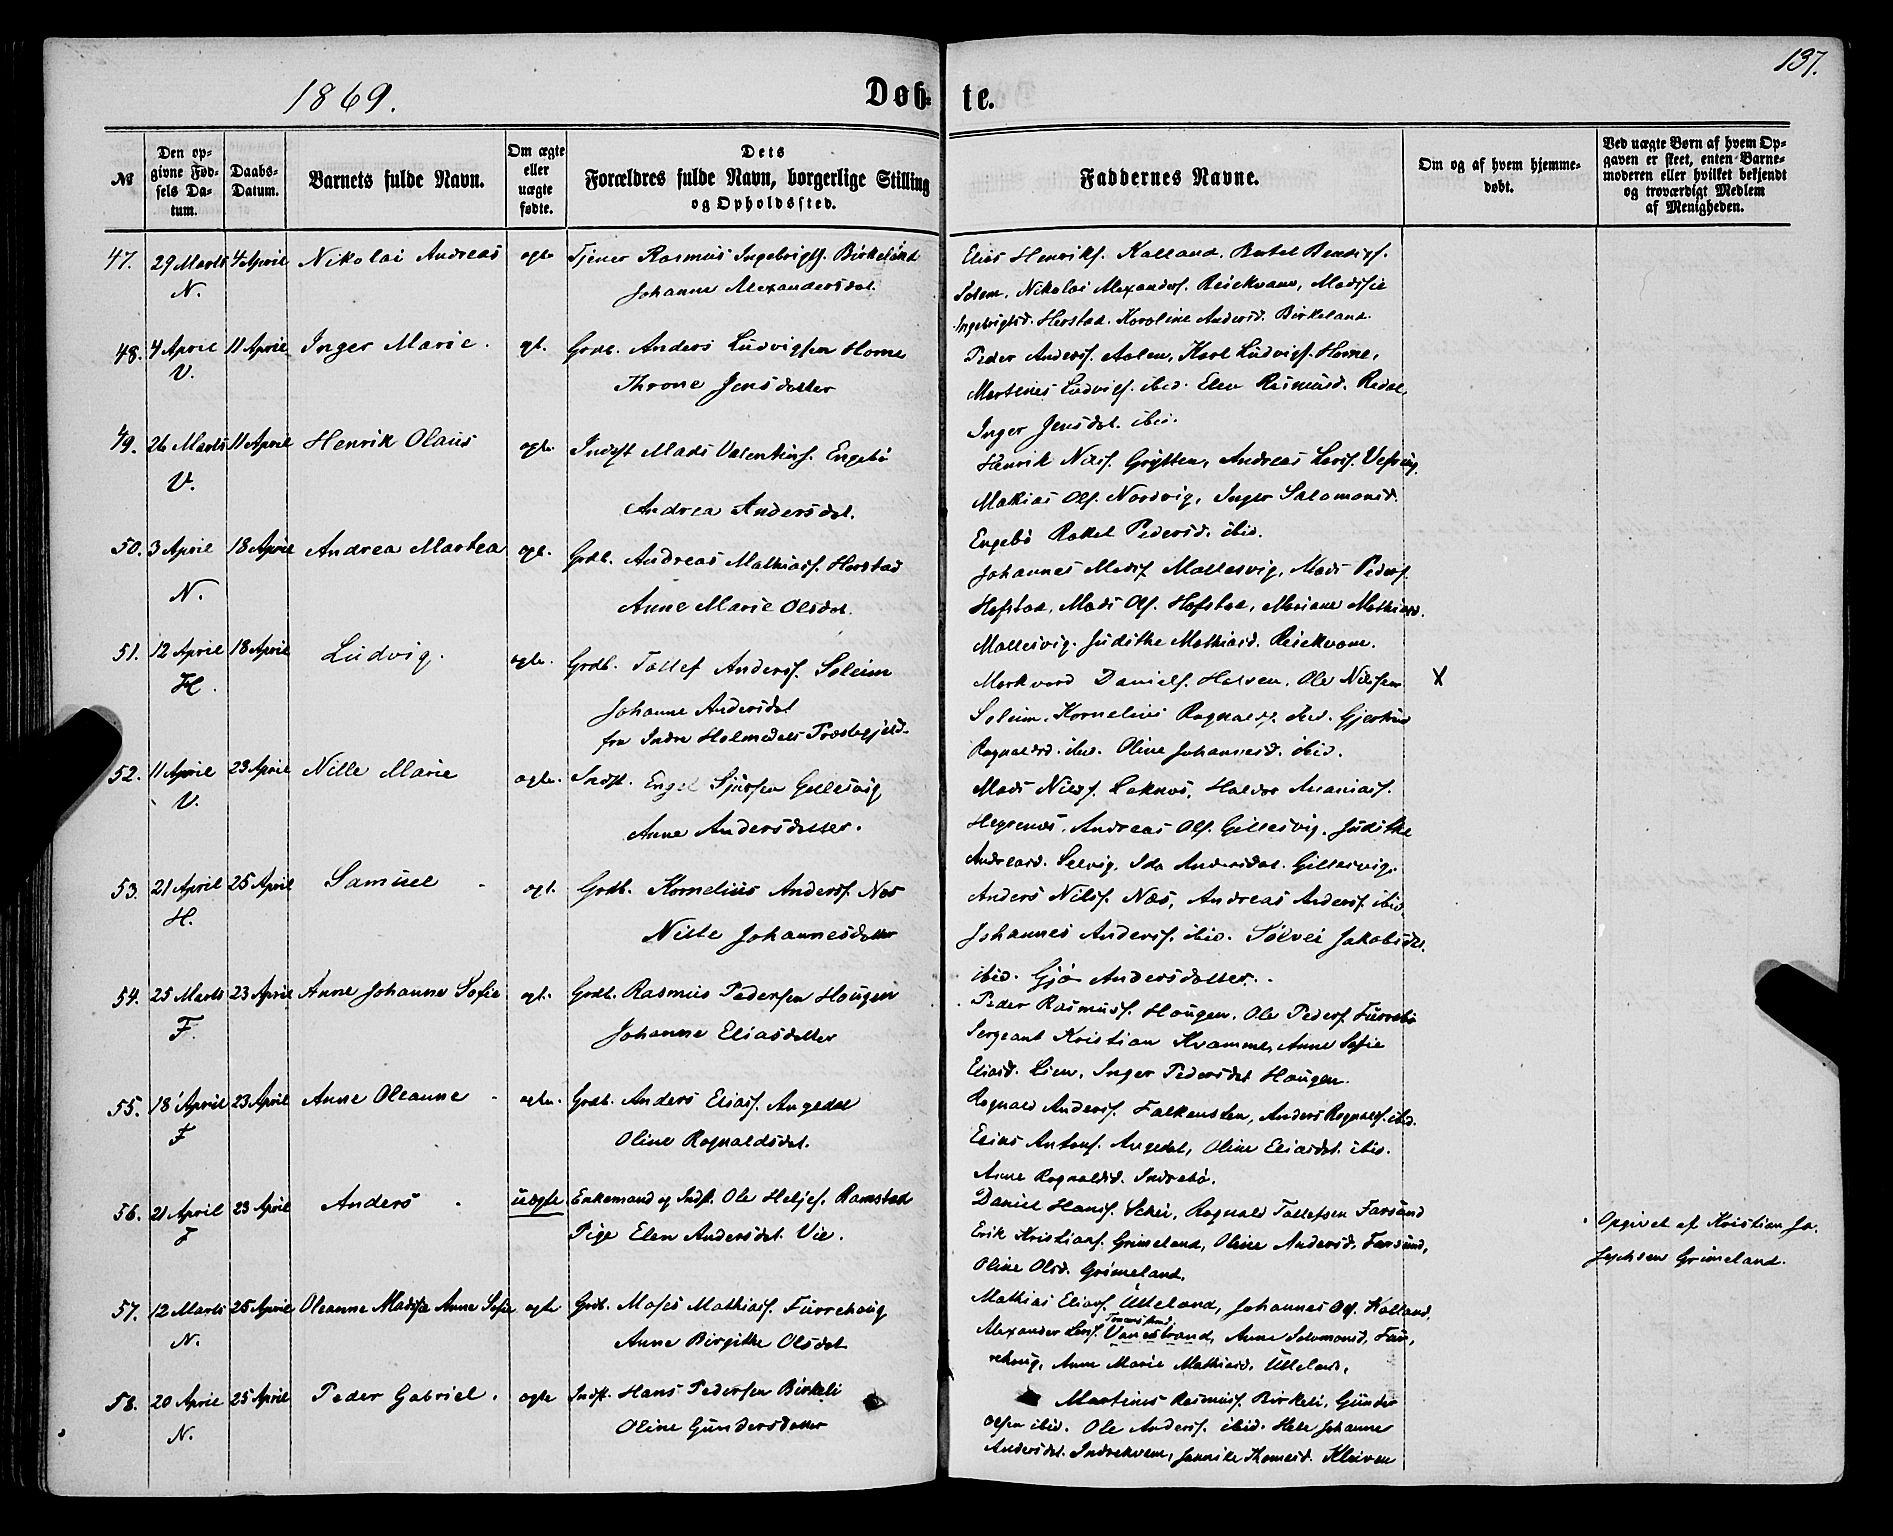 137.
1869.
Døb- te.
№
Den opgivne Fødsels Datum.
Daabs-Datum.
Barnets fulde Navn.
Om ægte eller uægte fødte.
Dets Forældres fulde Navn, borgerlige Stilling og Opholdssted.
Faddernes Navne.
Om og af hvem hjemmedøbt.
Ved uægte Børn af hvem Opgaven er skeet, enten Barnemoderen eller hvilket bekjendt og troværdigt Medlem af Menigheden.
47. 29 Marts 4 April Nikolai Andreas ægte Tjener Rasmus Ingebrigts. Birkeland
N. Johanne Alexandersdat.
Elias Henriks. Kalland. Bertel Bendixs.
Solem, Nikolai Alexanders. Reiekvam, Madsie
Ingebrigtsd. Herstad. Karoline Andersd. Birkeland
48. 4 April 11 April Inger Marie. ægt. Grdb. Anders Ludvigsen Horne
V. Throne Jensdatter
Peder Anders. Aalen, Karl Ludvigs. Horne,
Martines Ludvigs. ibid. Elen Rasmusd. Redal,
Inger Jensdat. ibid.
49. 26 Marts 11 April Henrik Olaus ægte Indst Mads Valentins. Engebø
V. Andrea Andersdat.
Henrik Nils. Grytten, Andreas Lars. Vefring
Mathias Ols. Nordvig, Inger Salomonsd.
Engebø Rakel Pedersd. ibid.
50. 3 April 18 April Andrea Martea ægt. Grdb. Andreas Mathias. Herstad
N. Anne Marie Olsdat.
Johannes Mads. Mallesvig, Mads Peders.
Hafstad, Mads Ols. Hafstad, Mariane Mathiasd.
Mallesvig. Judithe Mathiasd. Reiekvam.
51. 12 April 18 April Ludvig. ægte. Grdb. Tollef Anders. Soleim
H. Johanne Andersdat
fra Indre Holmedals Præstegjeld.
Markvard Daniels. Halsen, Ole Nilsen X
Soleim. Kornelius Ragnalds. ibid. Gjertrud
Ragnaldsd. ibid. Oline Johannesd. ibid.
52. 11 April 23 April Nille Marie ægte. Indst. Engel Sjursen Gillesvig
V. Anne Andersdatter.
Mads Nils. Laknes, Haldor Ananias.
Hegrenæs, Andreas Ols. Gillesvig. Judithe
Andreasd. Selvig. Ida Andersdat. Gillesvig.
53. 21 April 25 April Samuel ægt. Grdb. Kornelius Anders. Næs
H. Nille Johannesdatter
Anders Nils. Næs, Andreas Anders. ibid
Johannes Anders. ibid. Sølvei Jakobsdt.
ibid. Gjø Andersdatter.
54. 25 Marts 23 April Anne Johanne Sofie ægt. Grdb. Rasmus Pedersen Hougen
F. Johanne Eliasdatter
Peder Rasmus. Hougen. Ole Peders. Furrebø
Sergeant Kristian Kvamme, Anne Sofie
Eliasd. Lien, Inger Pedersdat Hougen.
55. 18 April 23 April Anne Oleanne ægte. Grdb. Anders Elias. Angedal
F Oline Ragnaldsdat.
Ragnald Anders. Falkensten, Anders Ragnalds. ibid.
Elias Antons. Angedal, Oline Eliasdat. ibid.
Anne Ragnaldsd. Indrebø.
56. 21 April 23 April Anders uægte Enkemand og Indst. Ole Heljes. Ramstad
F Pige Elen Andersdat. Vie.
Daniel Hans. Schei, Ragnald Tollefsen Farsund
Erik Kristians. Grimeland, Oline Andersd. Farsund,
Oline Olsd. Grimeland.
Opgivet af Kristian Jo-
sephsen Grimeland.
57. 12 Marts 25 April Oleanne Madsia Anne Sofie ægte Grdb. Moses Mathias. Furrehoug
N. Anne Birgithe Olsdat
Mathias Elias. Utteland, Johannes Ols. Kalland,
Alexander Lars. Vanestrand, Anne Salomonsd. Fur-
rehoug, Anne Marie Mathiasd. Utteland,
58. 20 April 25 April Peder Gabriel. ægte Indst. Hans Pedersen Birkeli
N. Oline Gundersdatter
Martinus Rasmus. Birkeli, Gunder
Olsen ibid. Ole Anders. ibid. Hele Johanne
Andersdat. Indrekvam, Jannike Thomasd. Kleiven